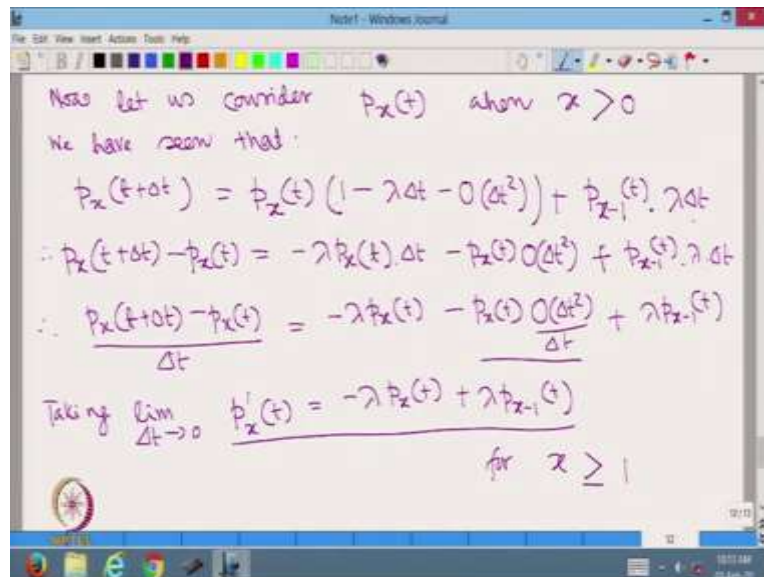 Note1 - Windows Journal
File Edit View Insert Actions Tools Help
Now let us consider p_x(t) when x > 0
We have seen that:
p_x(t+Δt) = p_x(t) (1 - λΔt - O(Δt²)) + p_{x-1}(t) . λΔt
∴ p_x(t+Δt) - p_x(t) = -λ p_x(t) . Δt - p_x(t) O(Δt²) + p_{x-1}(t) . λ Δt
∴ (p_x(t+Δt) - p_x(t)) / Δt = -λ p_x(t) - p_x(t) O(Δt²) / Δt + λ p_{x-1}(t)
Taking lim Δt→0 p'_x(t) = -λ p_x(t) + λ p_{x-1}(t)
for x ≥ 1
NPTEL
12